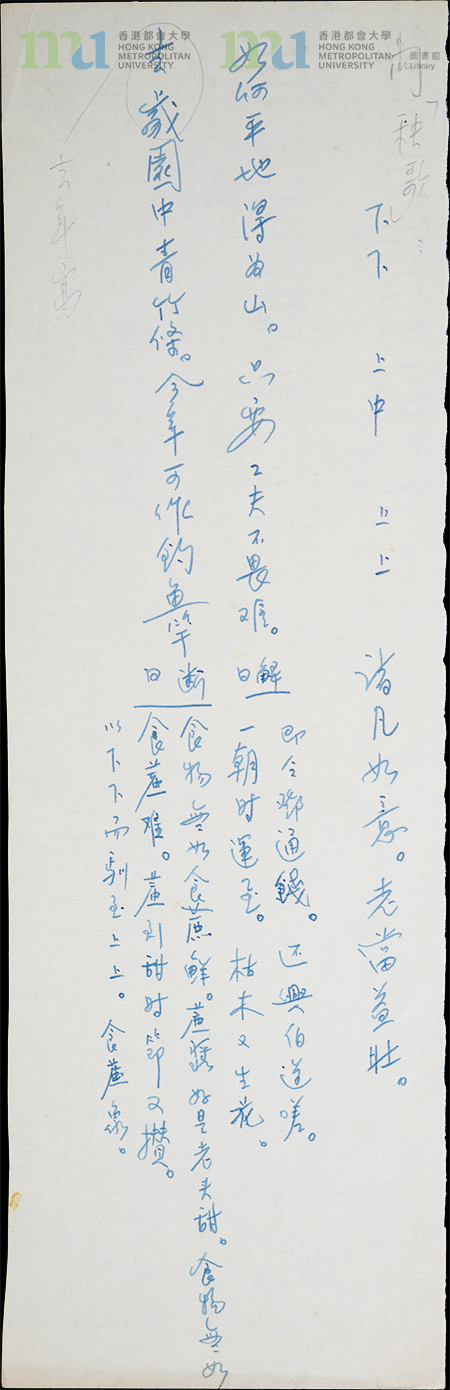 香港都會大學
HONG KONG
METROPOLITAN
UNIVERSITY
香港都會大學
HONG KONG
METROPOLITAN
UNIVERSITY
圖書館
Library
問「秧歌」:
下下 上中 上上 諸凡如意。老當益壯。
如何平地得为山。只要工夫不畏难。
去歲園中青竹條。今年可作釣魚竿
解曰
即今鄧通錢。还興伯道嗟。
一朝时運至。枯木又生花。
断曰
食物無如食蔗鮮。蔗漿好是老来甜。食物無如
食蔗难。蔗到甜时節又攢。
以下下而馴至上上。食蔗象。
去年寫